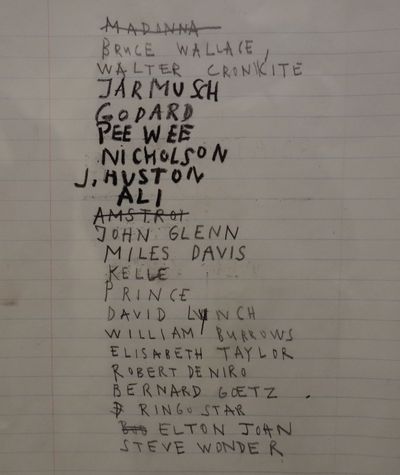 MADONNA
BRUCE WALLACE,
WALTER CRONKITE
JARMUSH
GODARD
PEE WEE
NICHOLSON
J. HUSTON
ALI
AMSTROI
JOHN GLENN
MILES DAVIS
KELLE
PRINCE
DAVID LYNCH
WILLIAM BURROWS
ELISABETH TAYLOR
ROBERT DENIRO
BERNARD GOETZ .
RINGO STAR
ELTON JOHN
STEVE WONDER